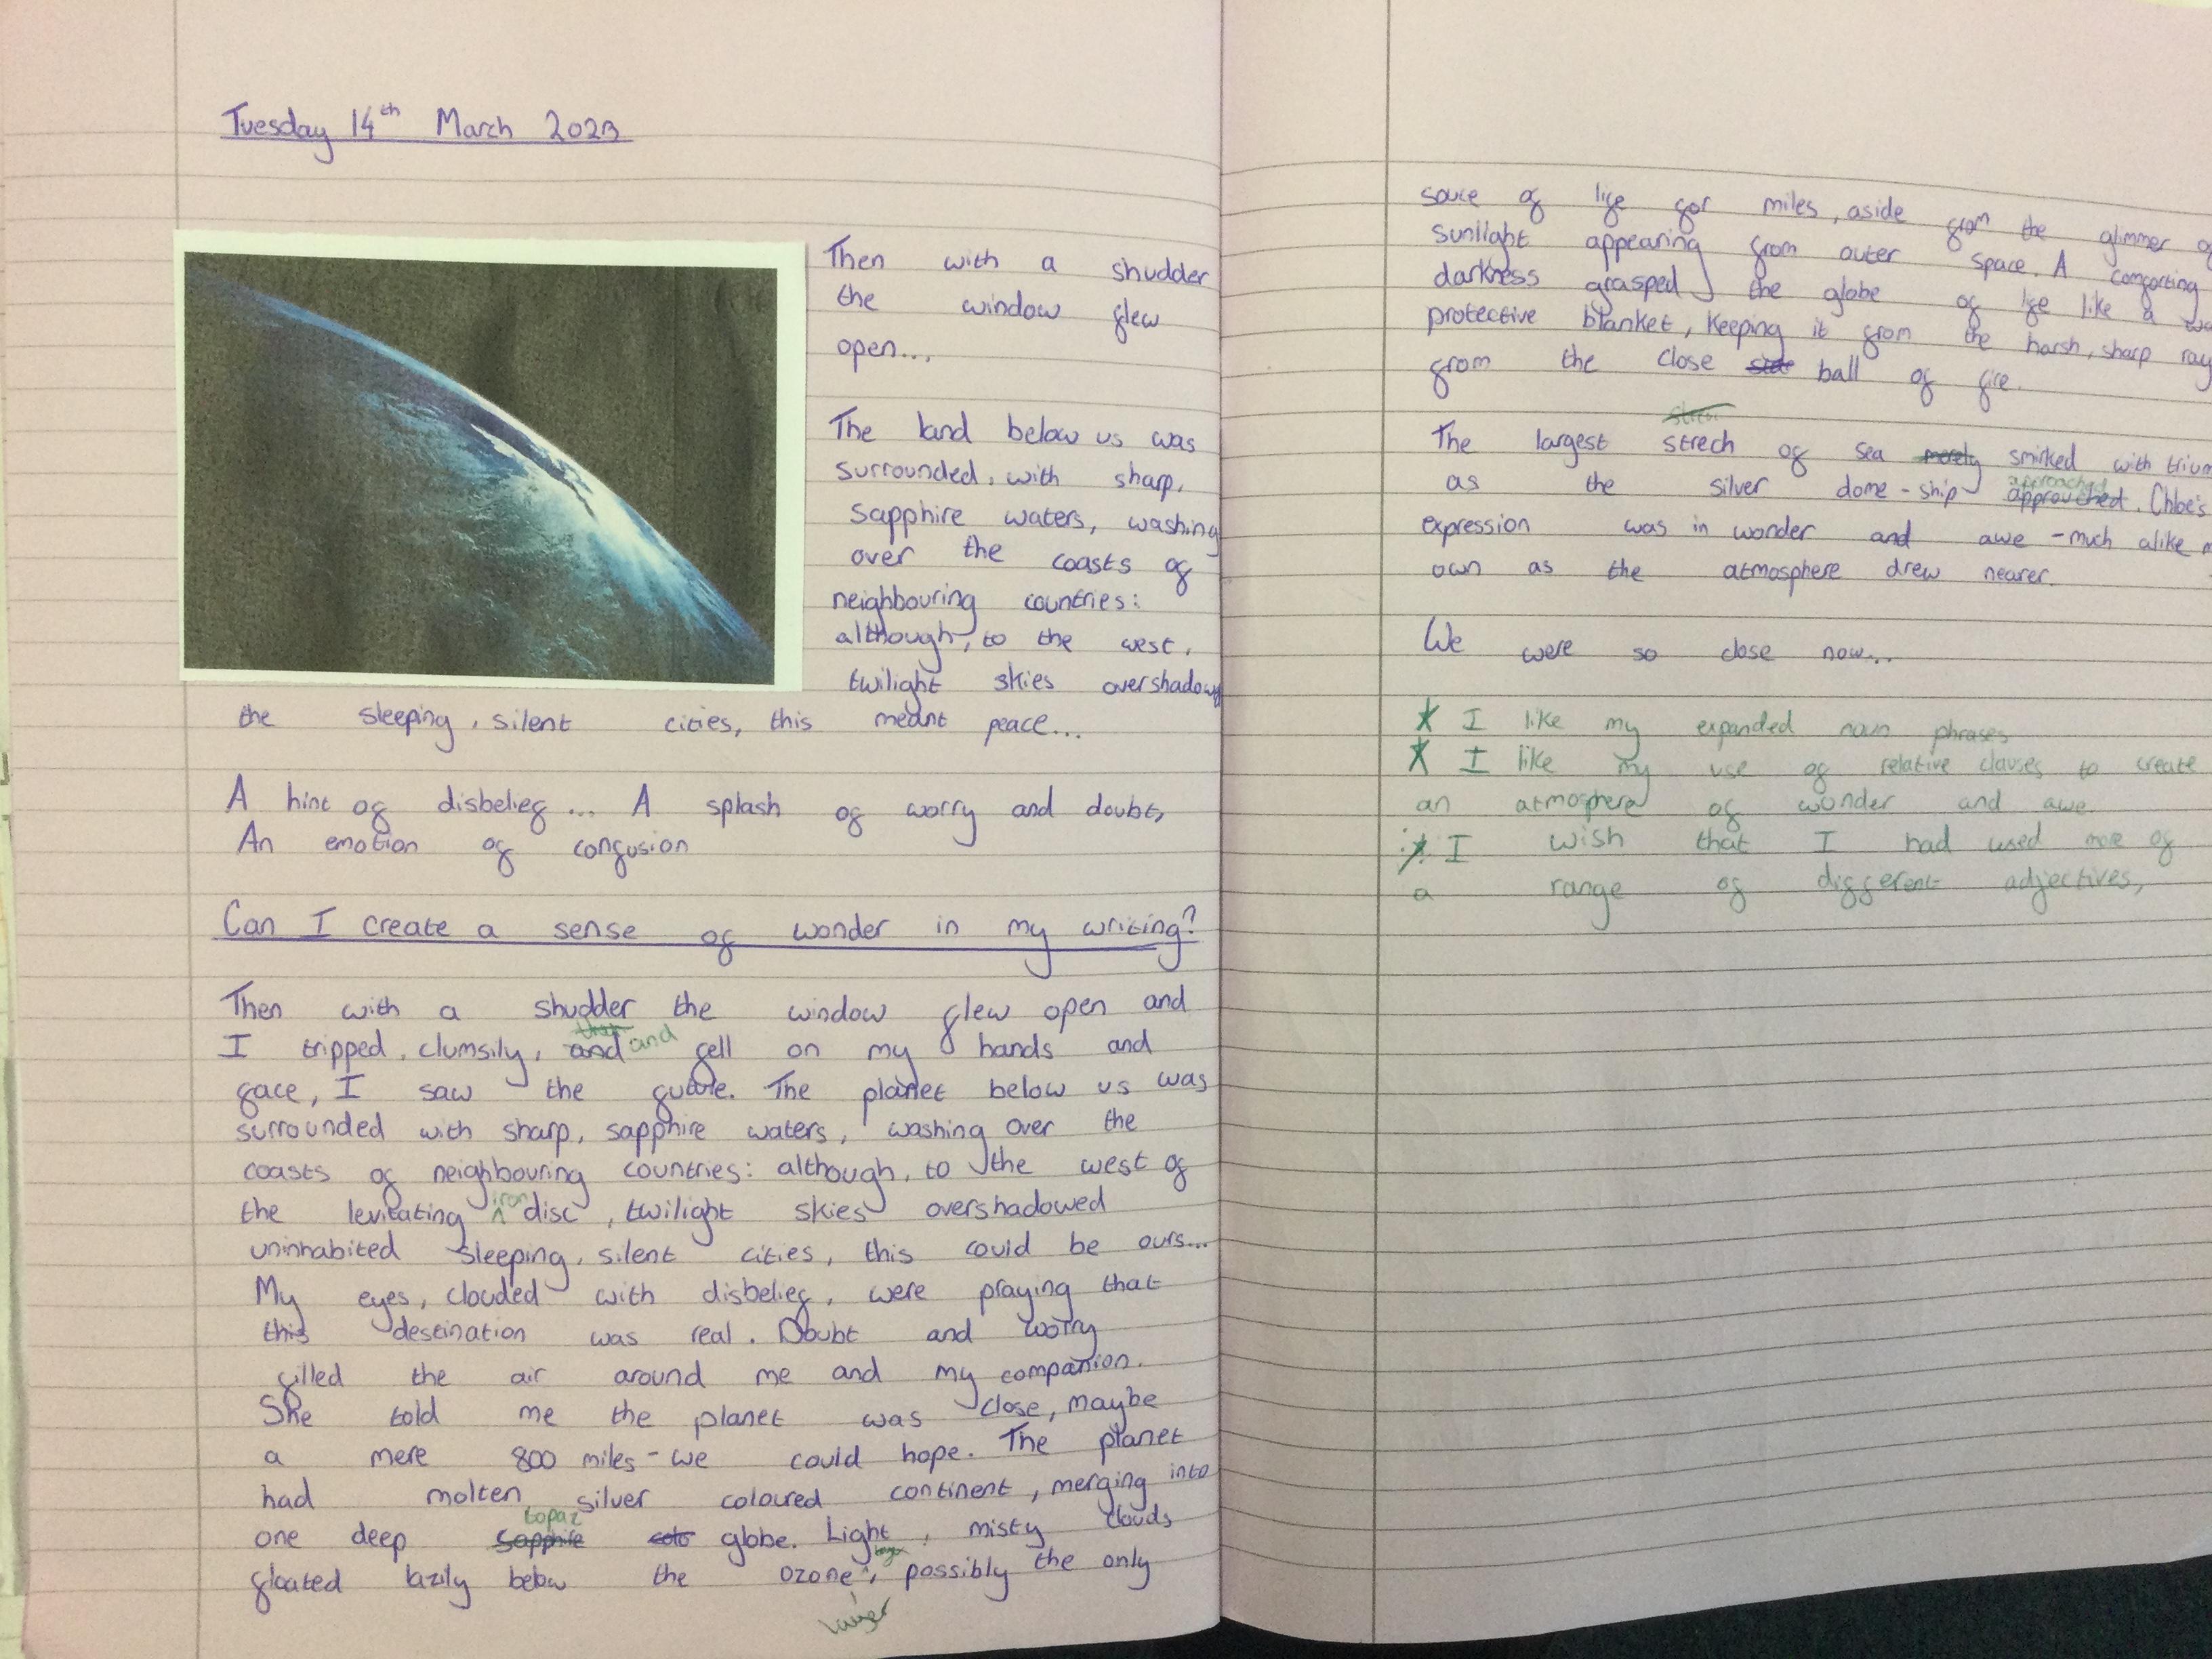 Tuesday 14th March 2023
Then with a shudder
the window flew
open...
The land below us was
surrounded, with sharp,
sapphire waters, washing
over the coasts of
neighbouring countries:
although, to the west,
twilight skies overshadowed
the sleeping, silent cities, this meant peace...
A hint of disbelief... A splash of worry and doubt,
An emotion of confusion
Can I create a sense of wonder in my writing?
Then with a shudder the window flew open and
I tripped, clumsily, and and fell on my hands and
face, I saw the future. The planet below us was
surrounded with sharp, sapphire waters, washing over the
coasts of neighbouring countries: although, to the west of
the levitating iron disc, twilight skies overshadowed
uninhabited sleeping, silent cities, this could be ours...
My eyes, clouded with disbelief, were praying that
this destination was real. Doubt and worry
filled the air around me and my companion.
She told me the planet was close, maybe
a mere 800 miles - we could hope. The planet
had molten silver coloured continent, merging into
topaz
one deep sapphire globe. Light, misty clouds
floated lazily below the ozone, possibly the only
layer
souce of life for miles, aside from the glimmer of
sunlight appearing from outer space. A comforting
darkness grasped the globe of life like a
protective blanket, keeping it from the harsh, sharp ray
from the close ball of fire.
The largest strech of sea merely smirked with trium
approached
as the silver dome-ship approuched. Chloe's
expression was in wonder and awe - much alike m
own as the atmosphere drew nearer.
We were so close now...
I like my expanded noun phrases
I like my use of relative clauses to create
an atmosphere of wonder and awe.
I wish that I had used more of
a range of different adjectives,